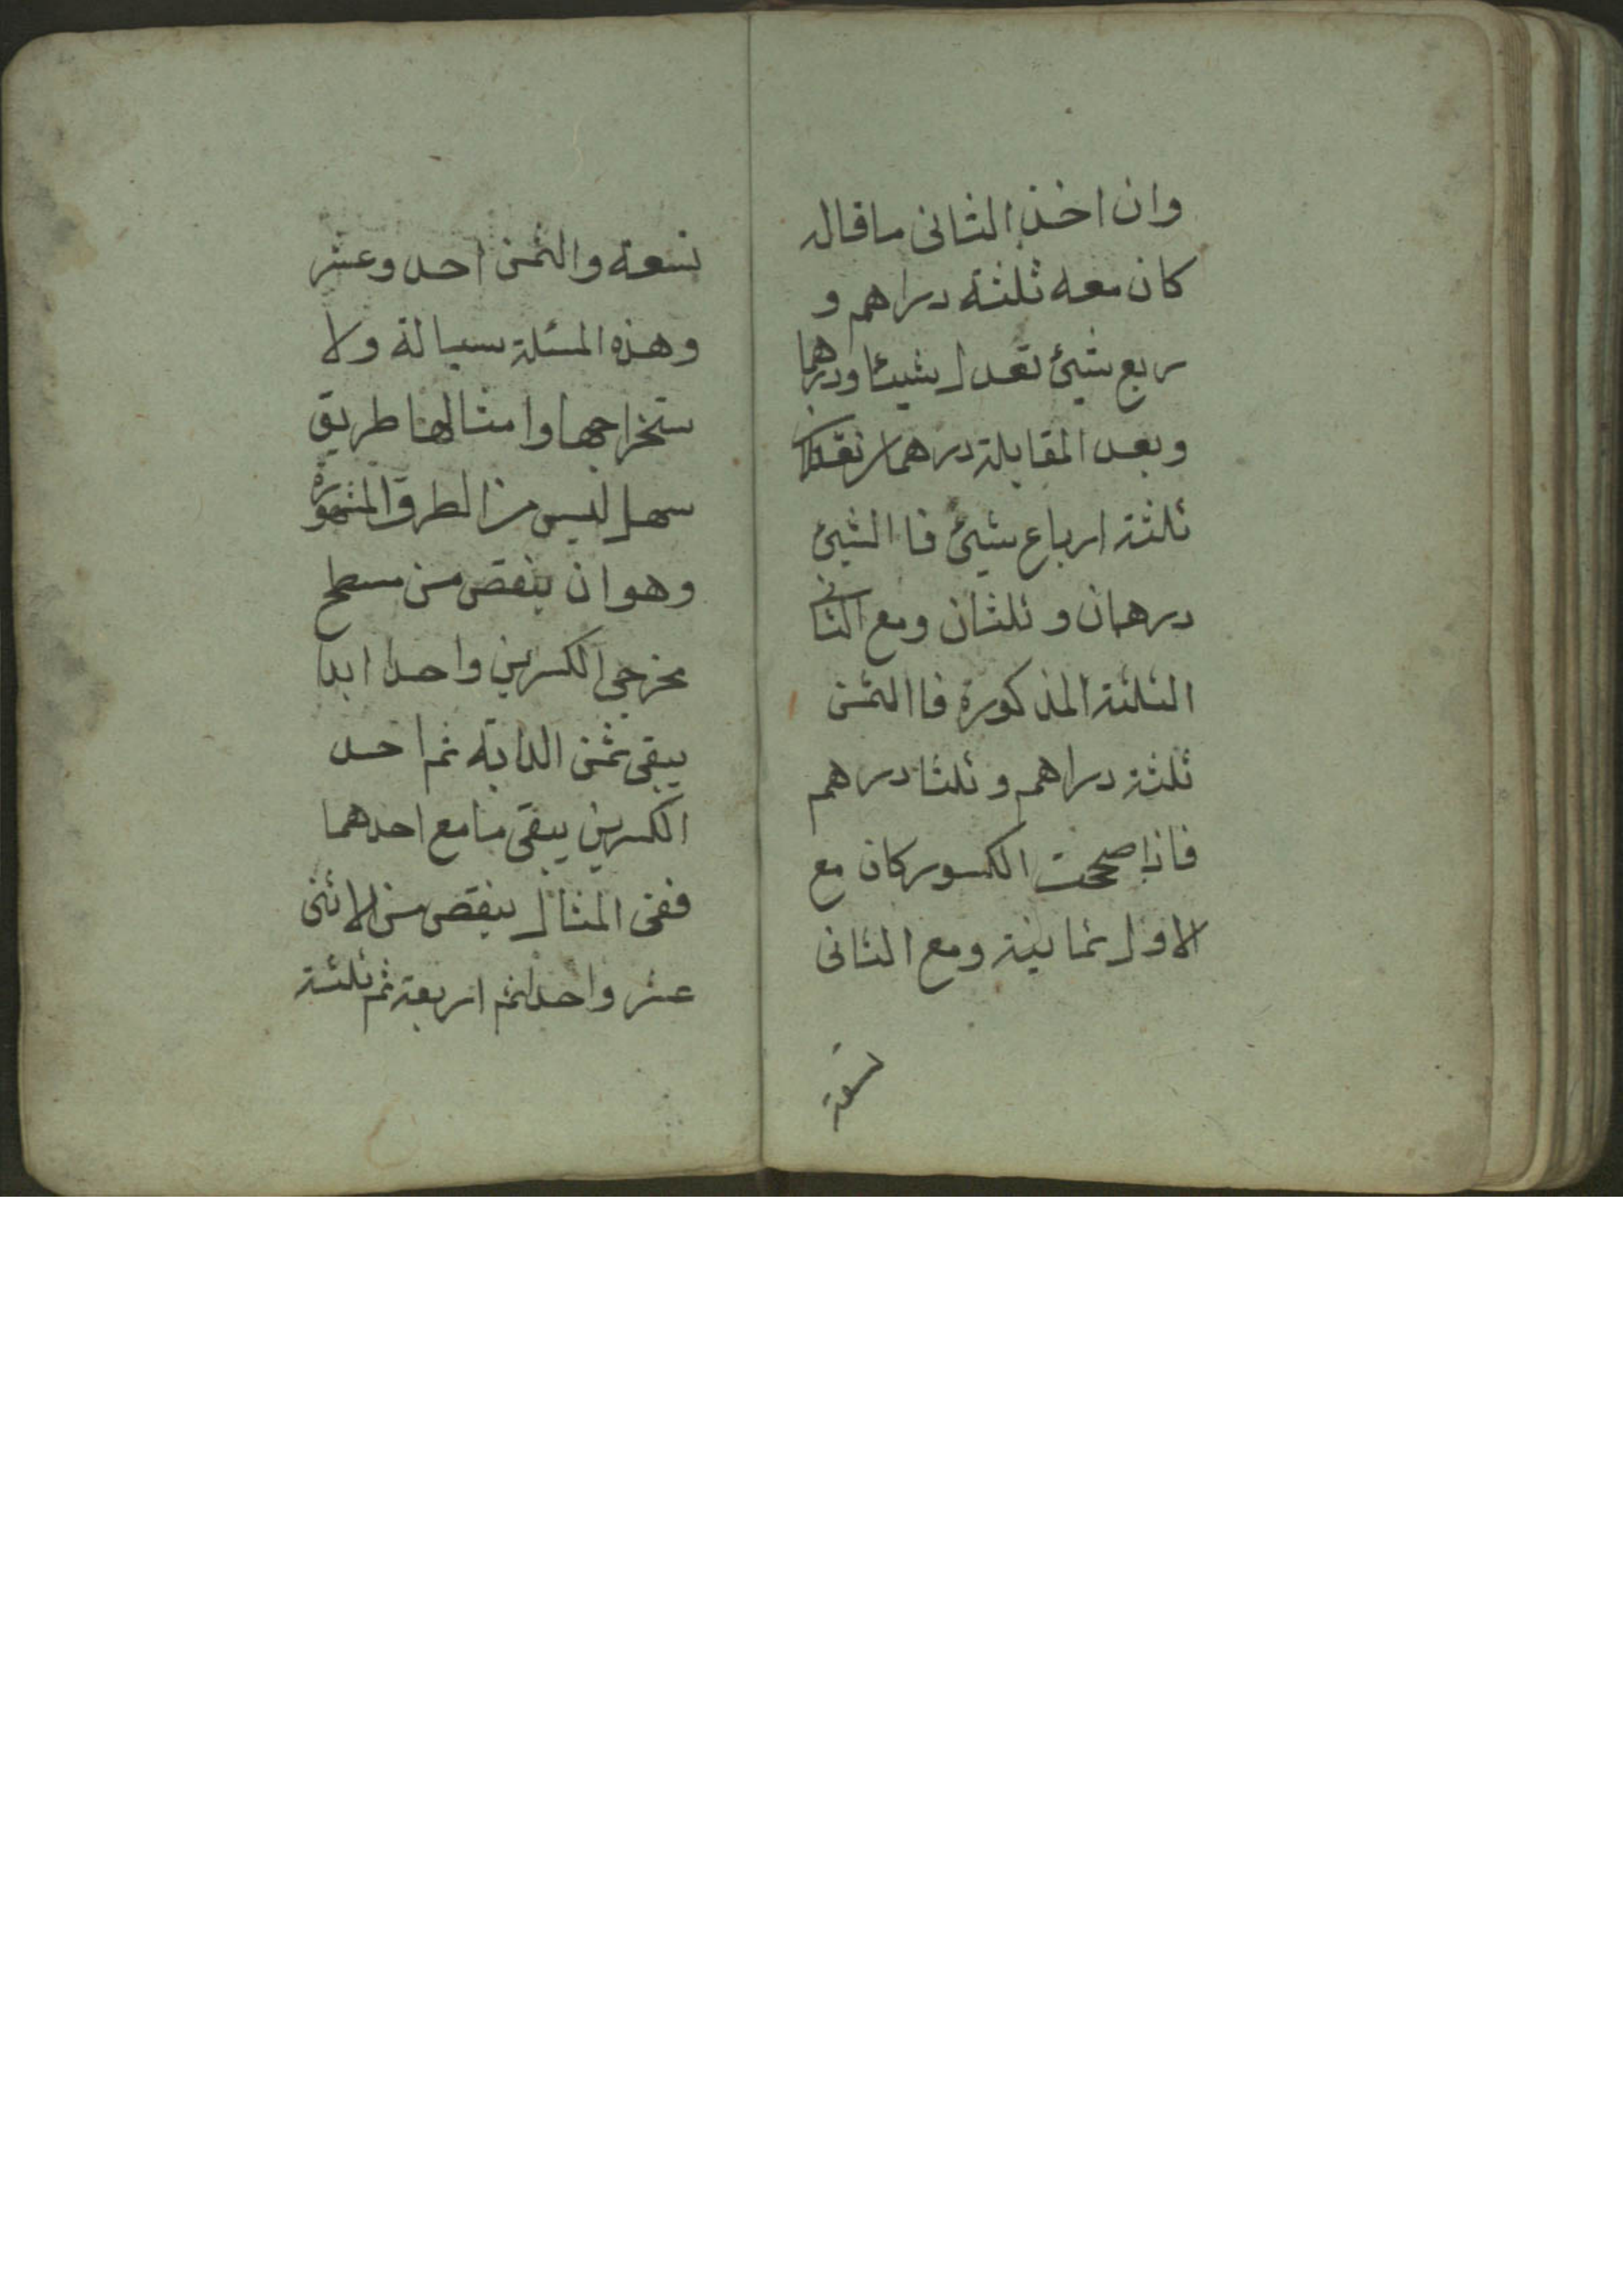 وان اخذ الثانى ما قاله
كان معه ثلثة دراهم و
ربع شيئ تعدل شيئا ودرهما
وبعد المقابلة درهمان تعدل
ثلثة ارباع شيئ فا الشيئ
درهمان و ثلثان ومع الثانى
الثلثة المذكورة فا الثمن
ثلثة دراهم و ثلثا درهم
فاذا صححت الكسور كان مع
الاول ثمانية ومع الثانى
تسعة
تسعة والثمن احد وعشر
وهذه المسئلة سيالة ولا
ستخراجها وامثالها طريق
سهل ليس من الطرق المشهورة
وهو ان ينقص من مسطح
مخرجى الكسرين واحدا ابدا
يبقى ثمن الدابه ثم احد
الكسرين يبقى ما مع احدهما
ففى المثال ينقص من الاثنى
عشر واحدا ثم اربعة ثم ثلثة